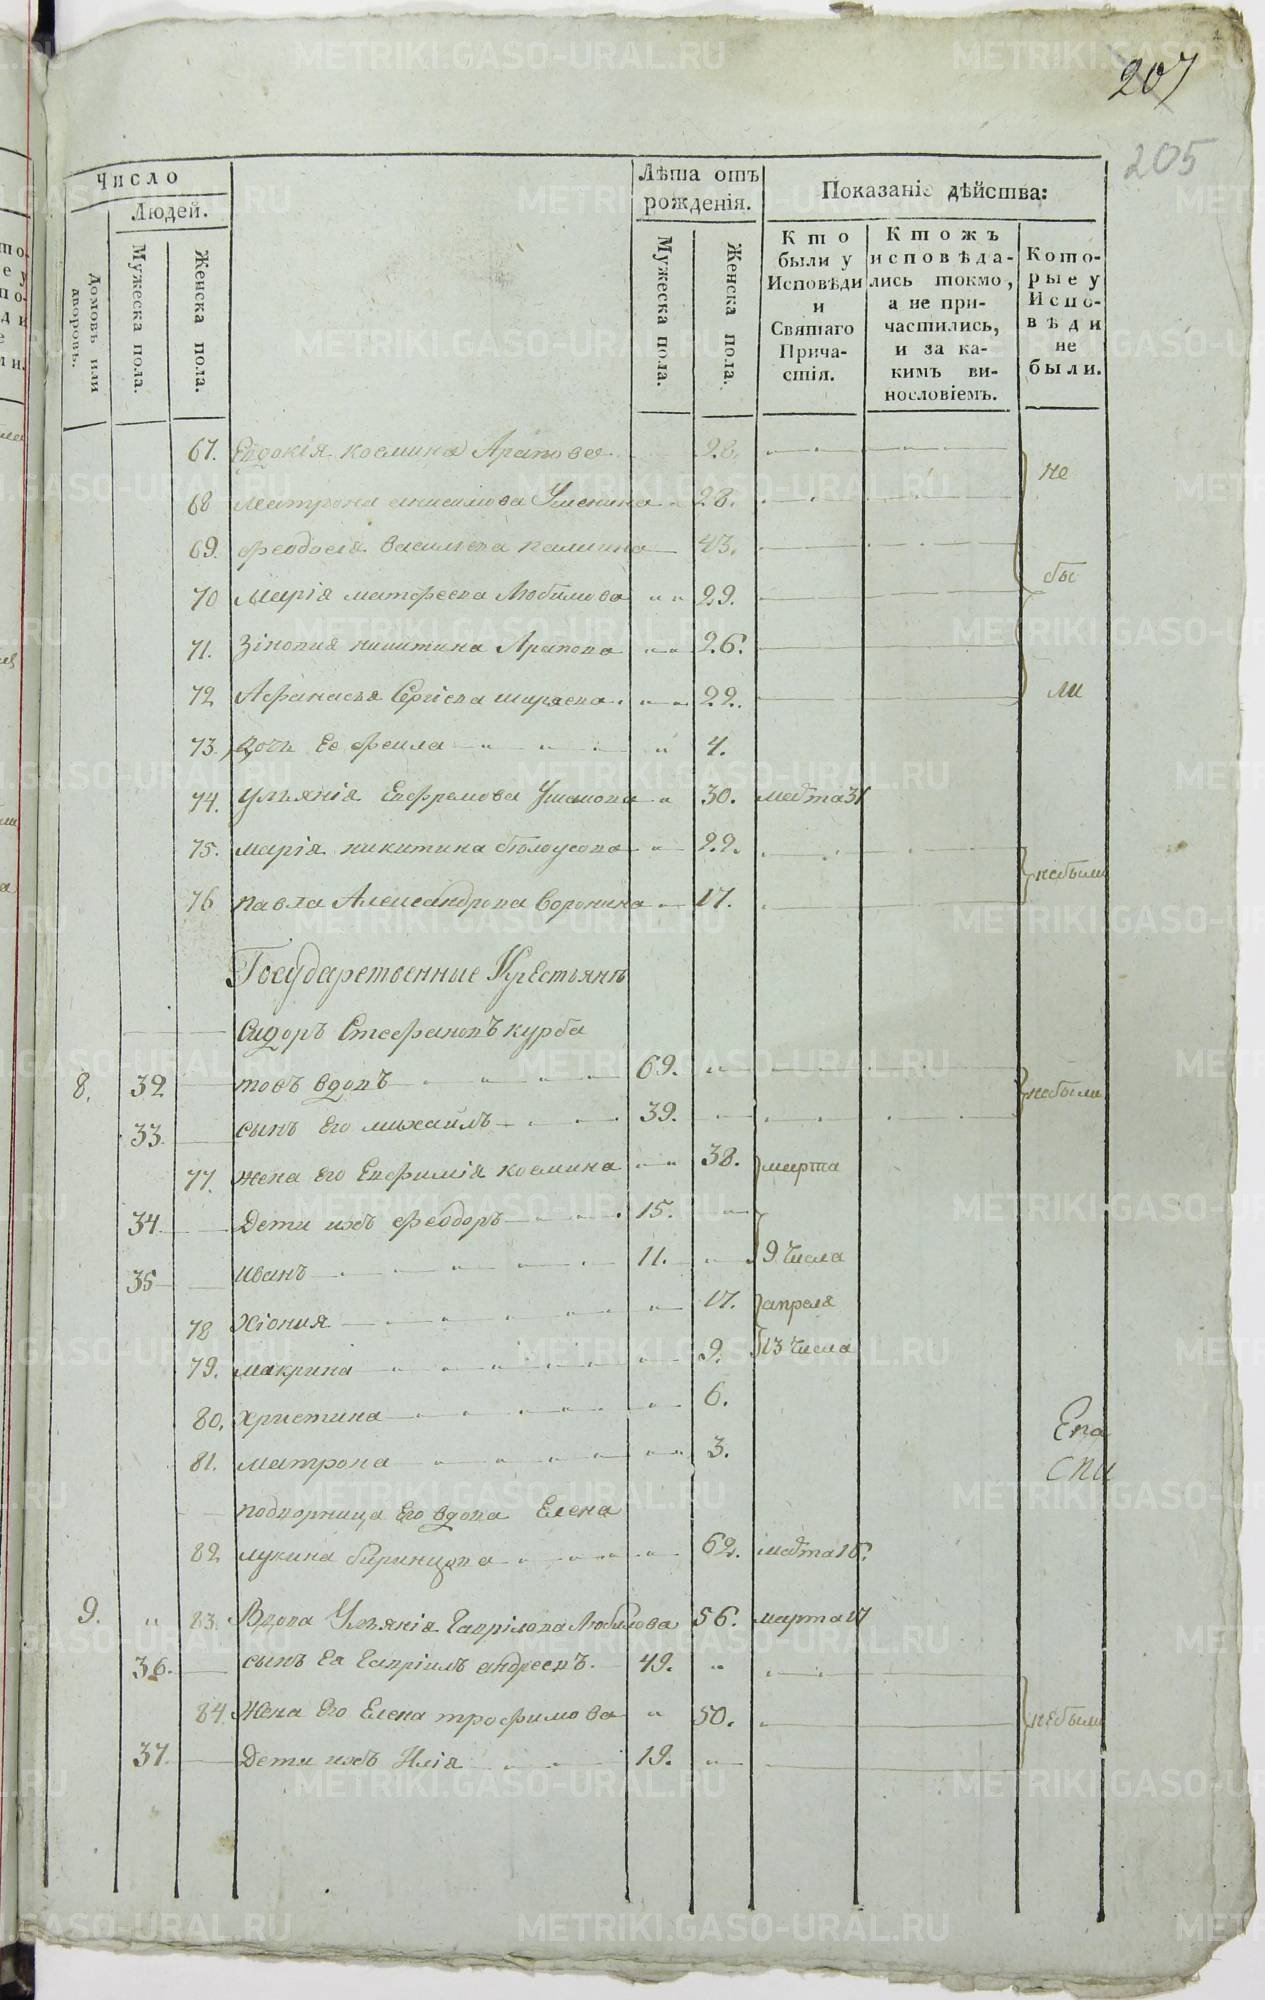 207
205
Число
Людей.
Домовъ или дворовъ.
Мужеска пола.
Женска пола.
Лѣта отъ рожденія.
Мужеска пола.
Женска пола.
Показаніе дѣйства:
Кто были у Исповѣди и Святаго Причастія.
Ктожъ исповѣдались токмо, а не причастились, и за какимъ винословіемъ.
Которые у Исповѣди не были.
67. Евдокія космина Арапова 28.
68 Матрона анисимова Ушенина 28.
69. Феодосія васильева палкина 43.
70 Марія матфеева Любимова 29.
71. Зіновия никитина Арапова 26.
72 Афанасья Сергіева ширяева 22.
73. дочь Ее феила 4.
74. Ульянія Евфремова Ушакова 30. марта 31
75. марія никитина белоусова 22.
76 павла Александрова Воронина 17.
не
бы
ли
небыли
Государственные Крестьянѣ
Сидоръ Стефановъ курба
8. 32 товъ вдовъ 69.
33. сынъ Его михаилъ 39.
небыли
77. жена Его Евфимія космина 38. марта
34 Дети ихъ феодоръ 15.
9 числа
35 иванъ 11.
78 Хіония 17. апреля
79. макрина 9. 13 числа
80. христина 6.
81. матрона 3.
подворница Его вдова Елена
82 лукина Баринцова 62. марта 16.
9. 83. Вдова Ульянія Гаврілова Любимова 56. марта 17
36. сынъ Ея Гавріилъ андреевъ. 49.
84 Жена Его Елена трофимова 50.
небыли
37. Дети ихъ Илія 19.
METRIKI.GASO-URAL.RU